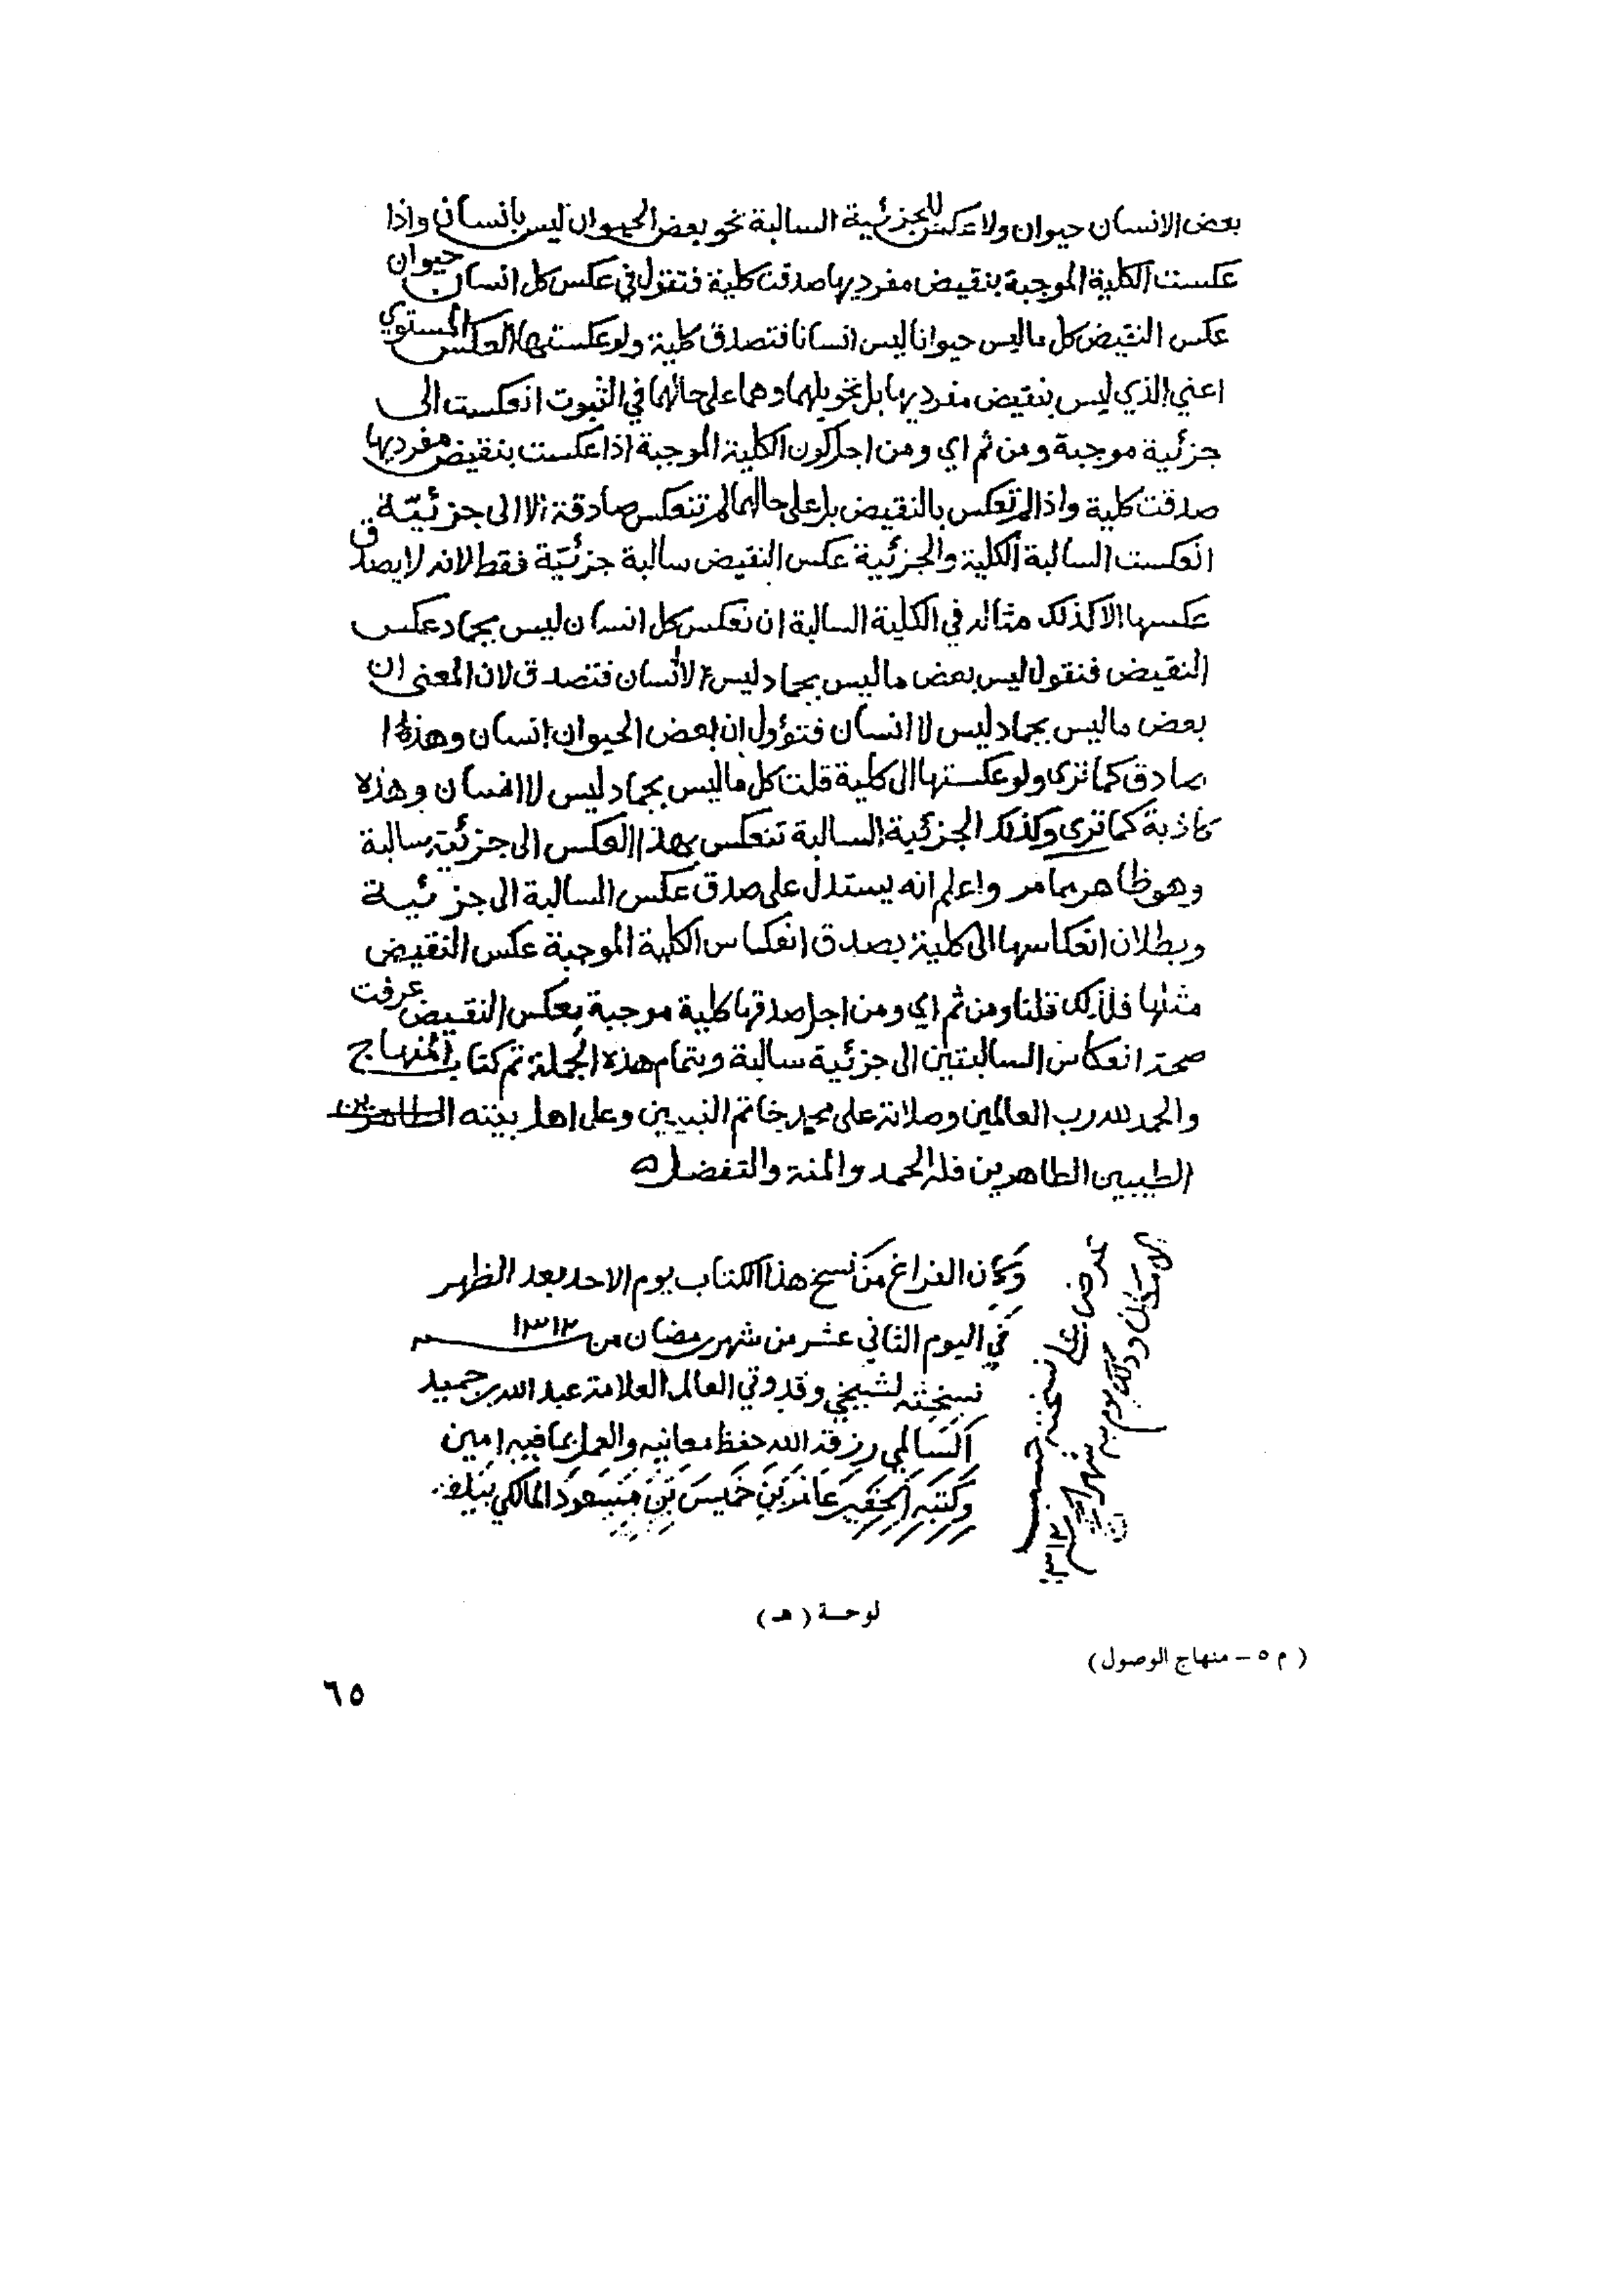 بعض الانسان حيوان ولا عكس للجزئية السالبة نحو بعض الحيوان ليس بانسان واذا
عكست الكلية الموجبة بنقيض مفرديها صدقت كلية فتقول في عكس كل انسان حيوان
عكس النقيض كل ما ليس حيوانا ليس انسانا فتصدق كلية ولو عكستها العكس المستوي
اعني الذي ليس بنقيض مفرديها بل بتحويلهما وهما على حالهما في الثبوت انعكست الى
جزئية موجبة ومن ثم اي ومن اجل كون الكلية الموجبة اذا عكست بنقيض مفرديها
صدقت كلية واذا لم تعكس بالنقيض بل على حالهما لم تنعكس صادقة الا الى جزئيّة
انعكست السالبة الكلية والجزئية عكس النقيض سالبة جزئية فقط لانه لا يصدق
عكسها الا كذلك مثاله في الكلية السالبة ان نعكس كل انسان ليس بجماد عكس
النقيض فنقول ليس بعض ما ليس بجماد ليس لا انسان فتصدق لان المعنى ان
بعض ما ليس بجماد ليس لا انسان فتؤول ان بعض الحيوان انسان وهذا
صادق كما ترى ولو عكستها الى كلية قلت كل ما ليس بجماد ليس لا انسان وهذه
كاذبة كما ترى وكذلك الجزئية السالبة تنعكس بهذا العكس الى جزئية سالبة
وهو ظاهر بما مر واعلم انه يستدل على صدق عكس السالبة الى جزئية
وبطلان انعكاسها الى كلية بصدق انعكاس الكلية الموجبة عكس النقيض
مثلها فلذلك قلنا ومن ثم اي ومن اجل صدقها كلية موجبة بعكس النقيض عرفت
صحة انعكاس السالبتين الى جزئية سالبة وبتمام هذه الجملة تم كتاب المنهاج
والحمد لله رب العالمين وصلاته على محمد خاتم النبيين وعلى اهل بيته الطاهرين
الطيبين الطاهرين فله الحمد والمنة والتفضل
وكان الفراغ من نسخ هذا الكتاب يوم الاحد بعد الظهر
في اليوم الثاني عشر من شهر رمضان من ١٣١٢ سنه
نسخته لشيخي وقدوتي العالم العلامة عبد الله بن حميد
السالمي رزقه الله حفظ معانيه والعمل بما فيه امين
وكتبه الحقير عامر بن خميس بن مسعود المالكي بيده
لوحة ( هـ )
( م ٥ – منهاج الوصول )
٦٥